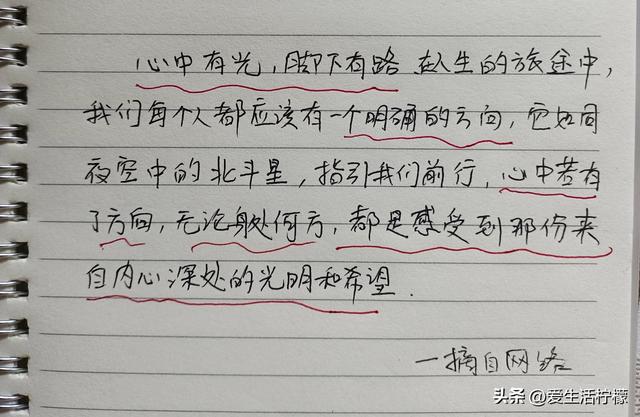 心中有光，脚下有路 在人生的旅途中，
我们每个人都应该有一个明确的方向，它如同
夜空中的北斗星，指引我们前行，心中若有
了方向，无论身处何方，都是感受到那份来
自内心深处的光明和希望.
—摘自网络
头条 @爱生活柠檬